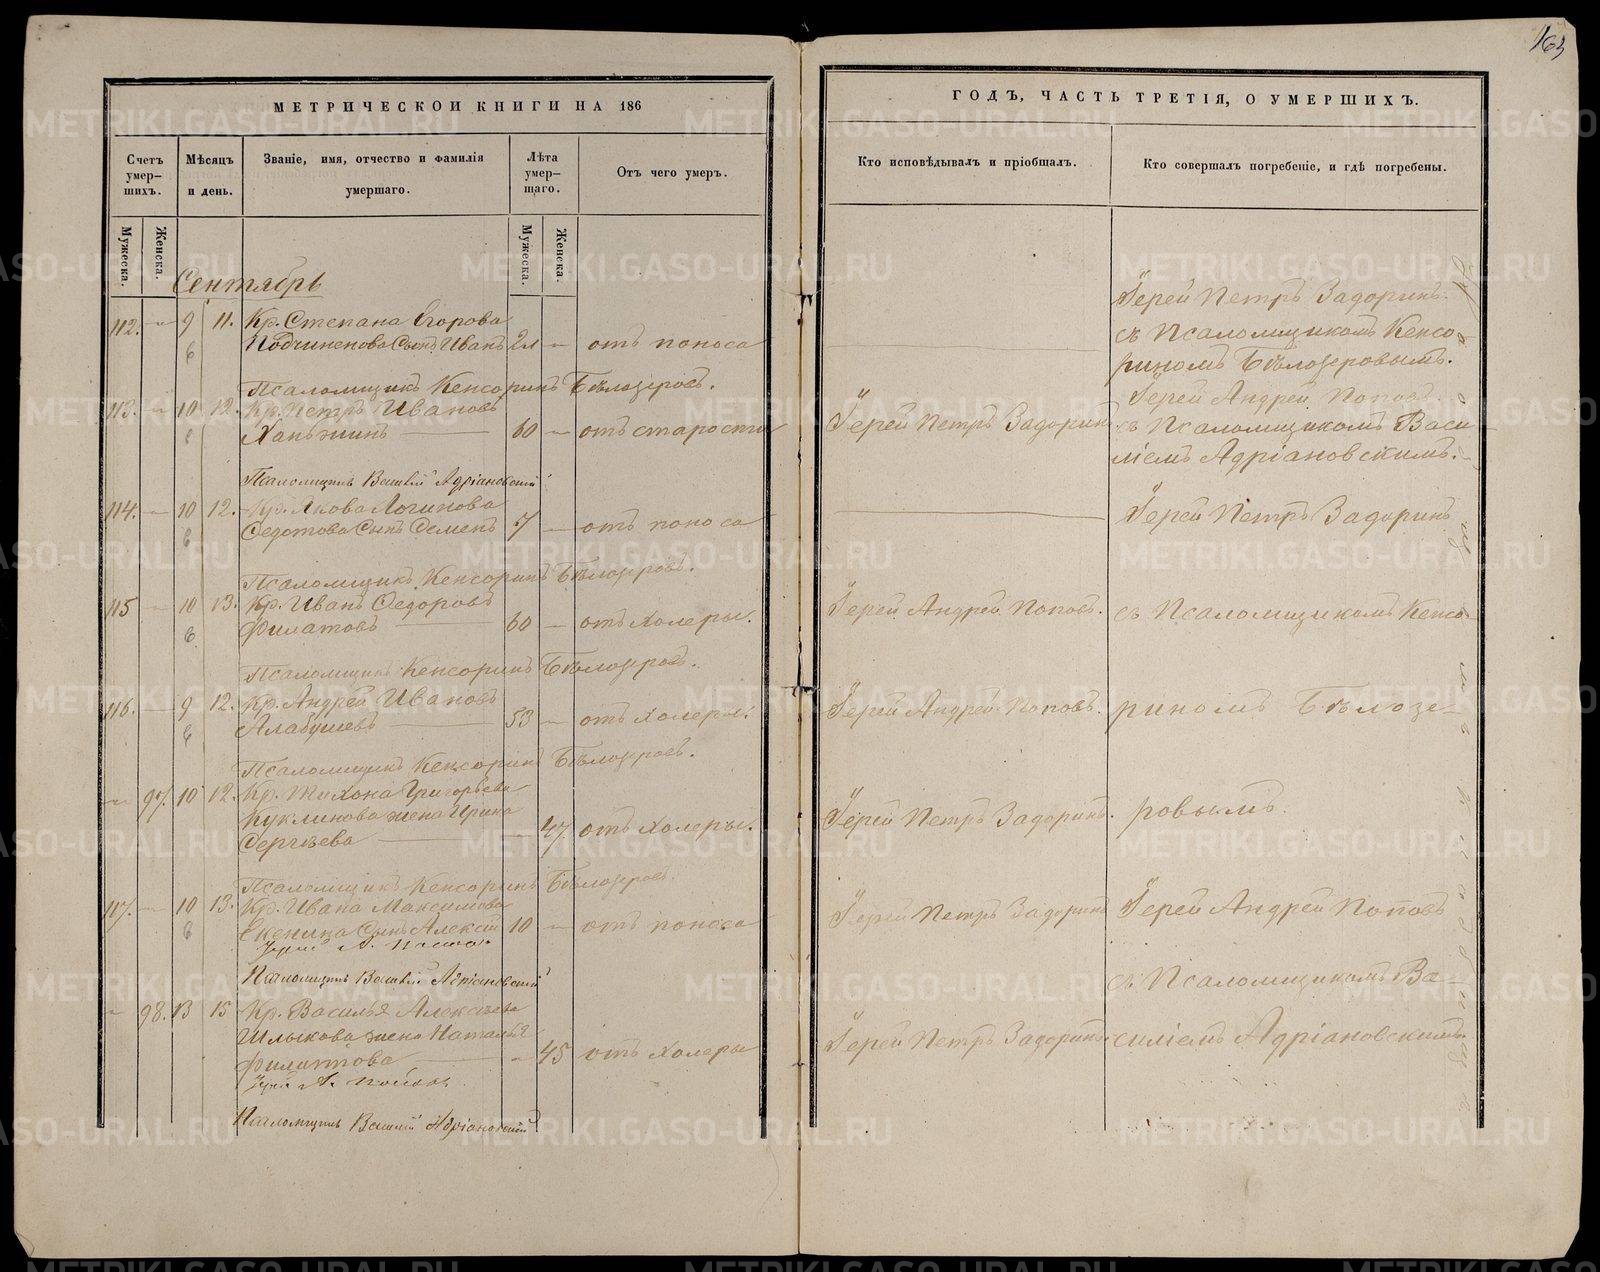 163
МЕТРИЧЕСКОЙ КНИГИ НА 186
ГОДЪ, ЧАСТЬ ТРЕТІЯ, О УМЕРШИХЪ.
Счетъ умер-шихъ.
Мѣсяцъ и день.
Званіе, имя, отчество и фамилія умершаго.
Лѣта умер-шаго.
Отъ чего умеръ.
Кто исповѣдывалъ и пріобщалъ.
Кто совершалъ погребеніе, и гдѣ погребены.
Мужеска.
Женска.
Мужеска.
Женска.
Сентябрь
Іерей Петръ Задоринъ
112. 9 11. Кр. Степана Егорова
съ Псаломщикомъ Кенсо
6 Подчиненова Сынъ Иванъ 2 отъ поноса
риномъ Бѣлозеровымъ.
Псаломщикъ Кенсоринъ Бѣлозеровъ.
Іерей Андрей Поповъ
113. 10 12. Кр. Петръ Ивановъ
Ханьжинъ 60 отъ старости Іерей Петръ Задоринъ съ Псаломщикомъ Васи
ліемъ Адріановскимъ.
Псаломщикъ Василій Адріановскій
114. 10 12. Кр. Якова Логинова
6 Федотова Сынъ Семенъ 7 отъ поноса Іерей Петръ Задоринъ
Псаломщикъ Кенсоринъ Бѣлозеровъ.
115 10 13. Кр. Иванъ Федоровъ
6 Филатовъ 60 отъ Холеры. Іерей Андрей Поповъ. съ Псаломщикомъ Кенсо-
Псаломщикъ Кенсоринъ Бѣлозеровъ.
116. 9 12. Кр. Андрей Ивановъ
6 Алабушевъ 53 отъ Холеры. Іерей Андрей Поповъ. риномъ Бѣлозе-
Псаломщикъ Кенсоринъ Бѣлозеровъ.
97. 10 12. Кр. Тихона Григорьева
Куклинова жена Ирина
Сергѣева 47. отъ Холеры. Іерей Петръ Задоринъ. ровымъ.
Псаломщикъ Кенсоринъ Бѣлозеровъ.
117. 10 13. Кр. Ивана Максимова
6 Сынъ Алексѣй 10 отъ поноса Іерей Петръ Задоринъ Іерей Андрей Поповъ
Псаломщикъ Василій Адріановскій
съ Псаломщикомъ Ва-
98. 13 15 Кр. Василья Алексѣева
Шлыкова жена Наталья
Филатова 45 отъ Холеры Іерей Петръ Задоринъ. силіемъ Адріановскимъ
Псаломщикъ Василій Адріановскій
METRIKI.GASO-URAL.RU